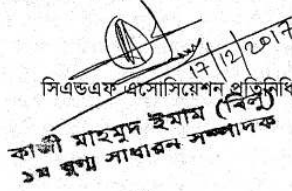 17/12/2017
সিএন্ডএফ এসোসিয়েশন প্রতিনিধি
কাজী মাহমুদ ইমাম (বিলু)
১ম যুগ্ম সাধারন সম্পাদক